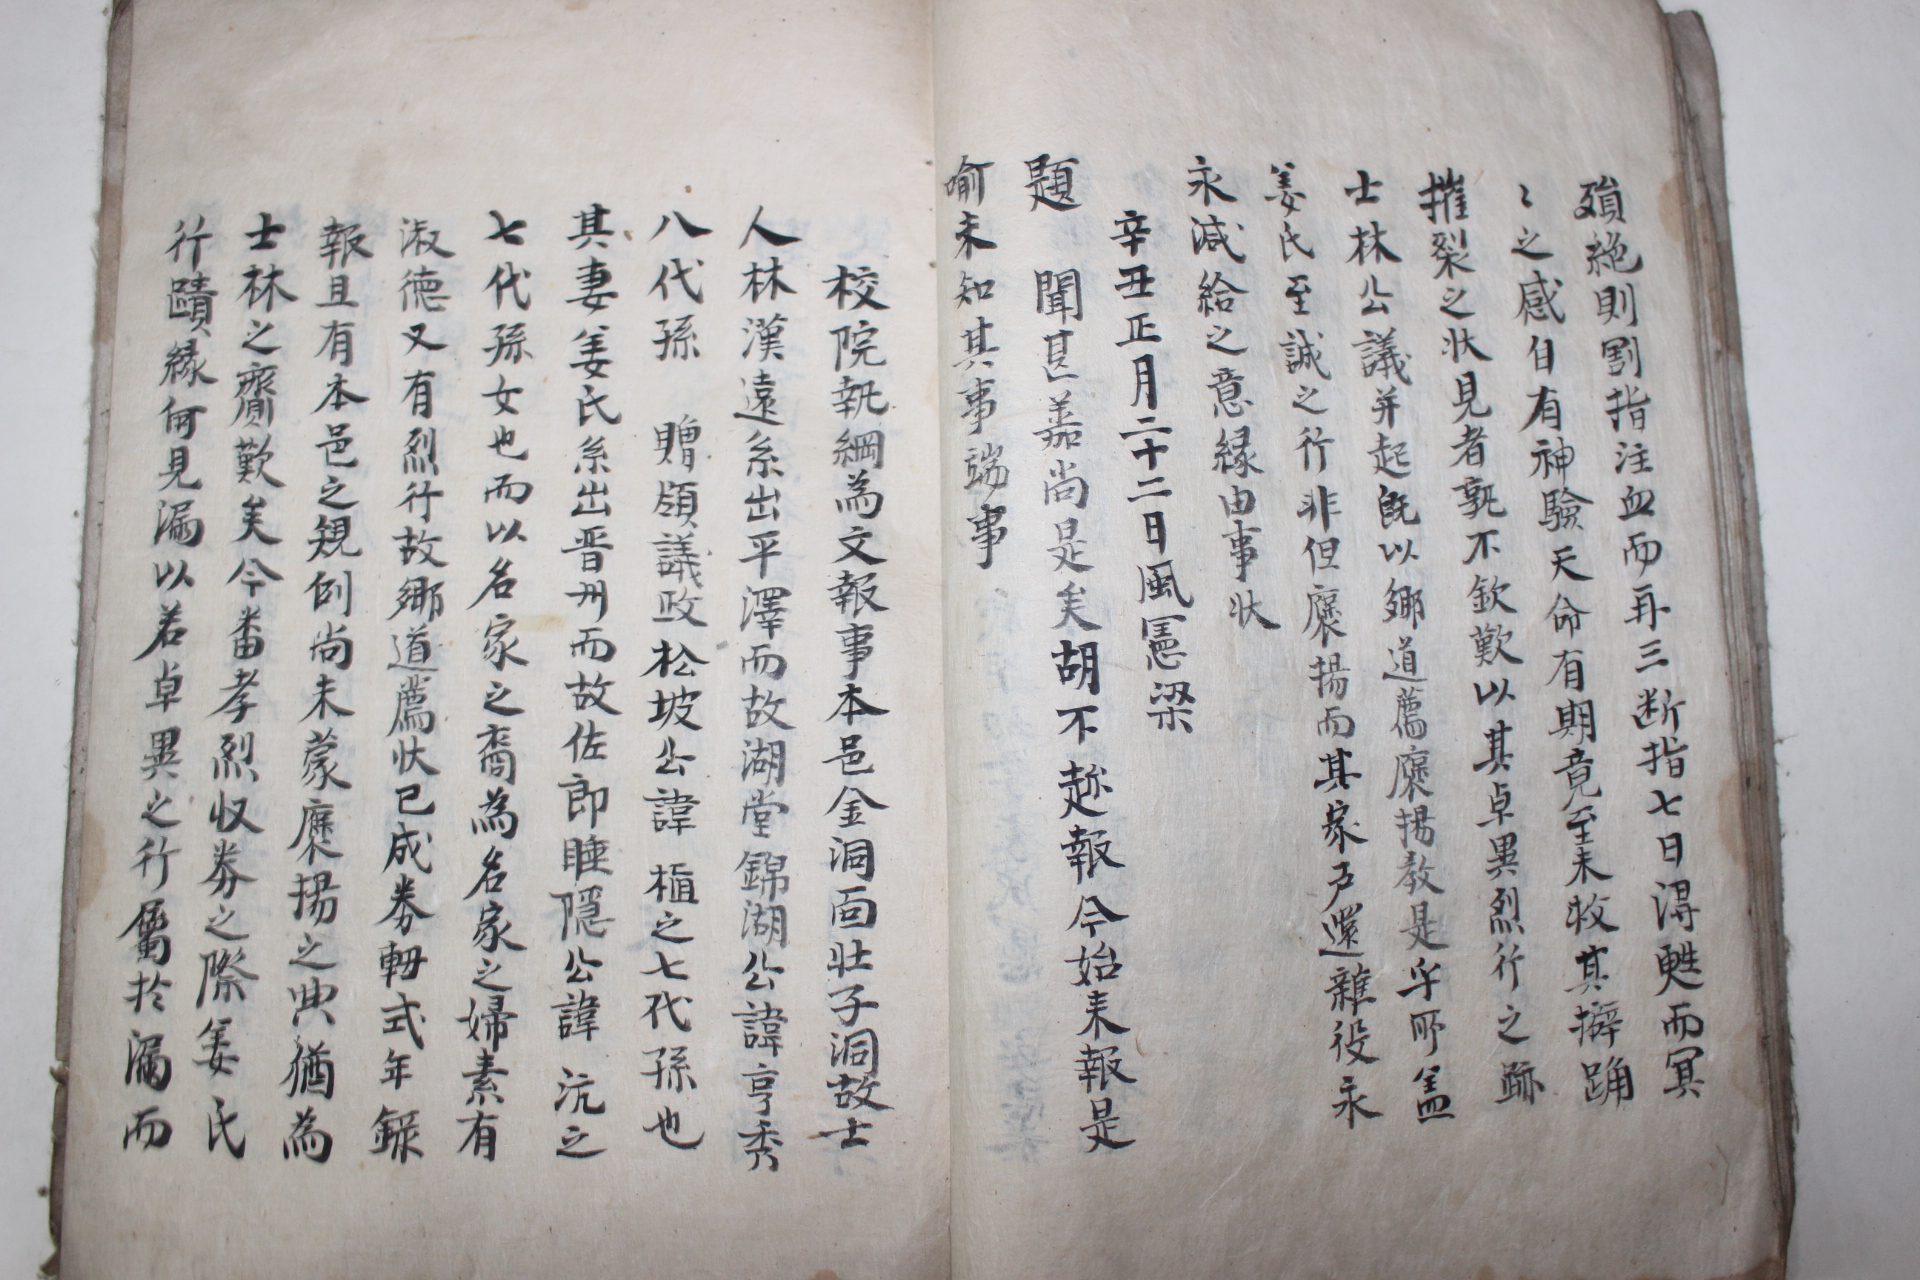 殞絶則割指注血而再三断指七日得甦而冥
〻之感自有神驗天命有期竟至未救其擗踊
摧裂之狀見者孰不欽歎以其卓異烈行之跡
士林公議并起旣以鄕道薦褒揚教是乎所盖
姜氏至誠之行非但褒揚而其家戶還雜役永
永减給之意緣由事狀
辛丑正月二十二日風憲梁
題 聞甚嘉尚是矣胡不趂報今始来報是
喻未知其事端事
校院執綱為文報事本邑金洞面壯子洞故士
人林漢遠系出平澤而故湖堂錦湖公諱亨秀
八代孫 贈領議政松坡公諱 植之七代孫也
其妻姜氏系出晋州而故佐郎睡隱公諱 沆之
七代孫女也而以名家之裔為名家之婦素有
淑德又有烈行故鄕道薦狀已成券軸式年錄
報且有本邑之規例尚未蒙褒揚之典猶為
士林之齎歎矣今番孝烈收券之際姜氏
行蹟緣何見漏以若卓異之行屬於漏而